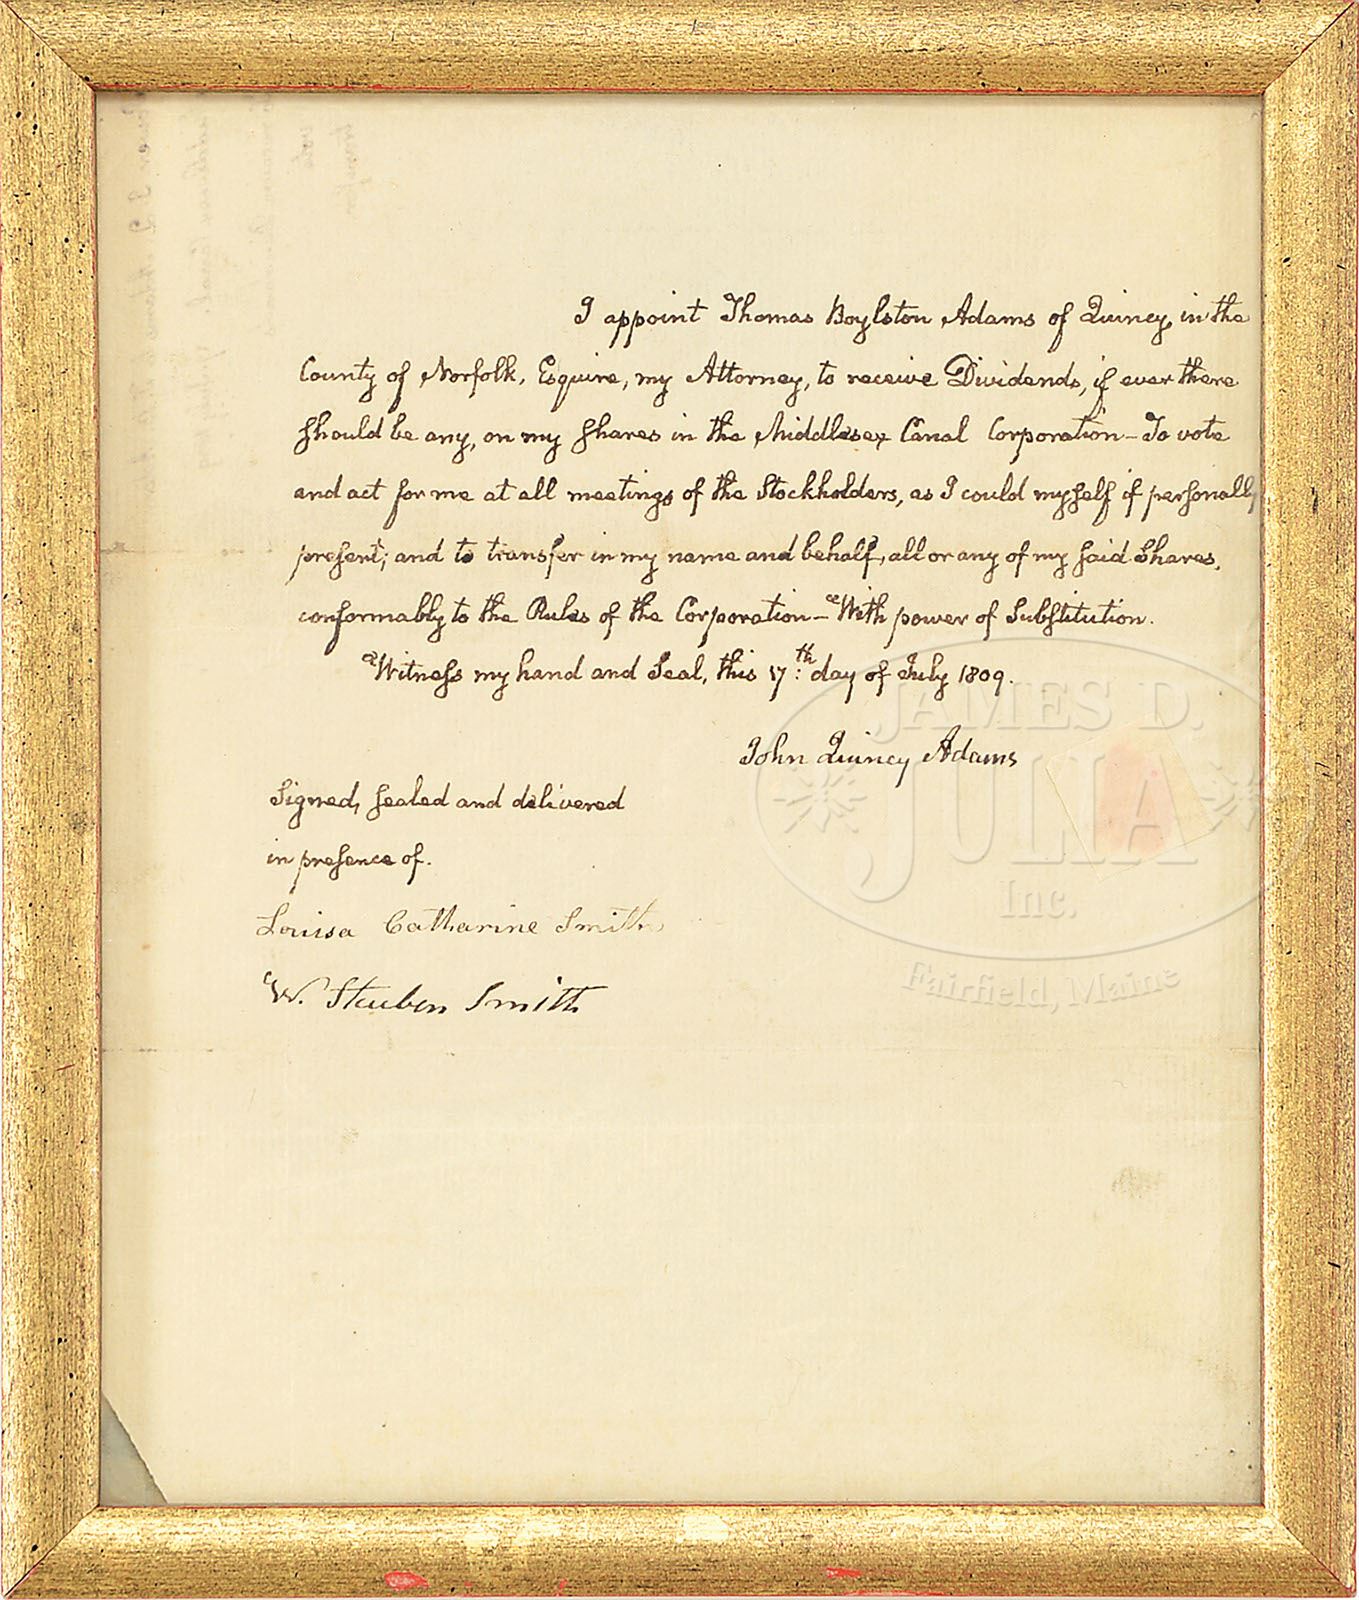 I appoint Thomas Boylston Adams of Quincy, in the
County of Norfolk, Esquire, my Attorney, to receive Dividends, if ever there
should be any, on my shares in the Middlesex Canal Corporation – To vote
and act for me at all meetings of the Stockholders, as I could myself if personally
present; and to transfer in my name and behalf, all or any of my said Shares,
conformably to the Rules of the Corporation – With power of Substitution.
Witness my hand and Seal, this 17:th day of July 1809.
John Quincy Adams
Signed, sealed and delivered
in presence of.
Louisa Catharine Smith
W. Steuben Smith
JAMES D.
JULIA
Inc.
Fairfield, Maine